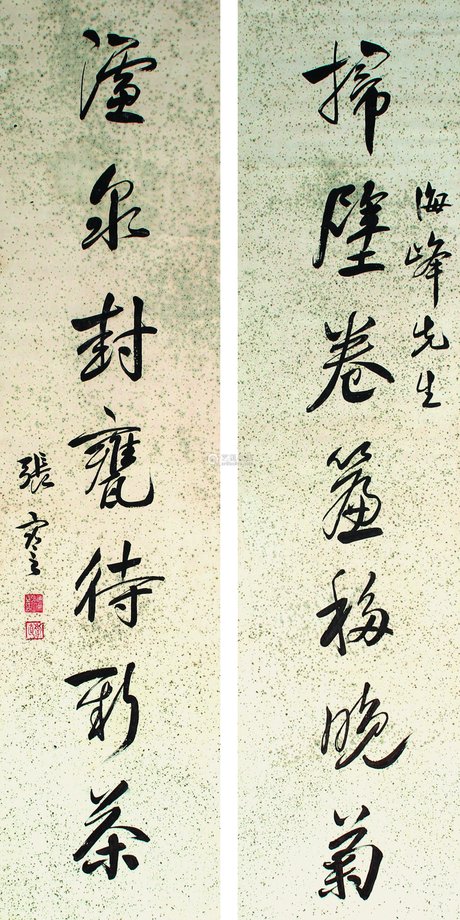 掃壁卷簾移晚菊
海峰先生
濾泉封甕待新茶
張